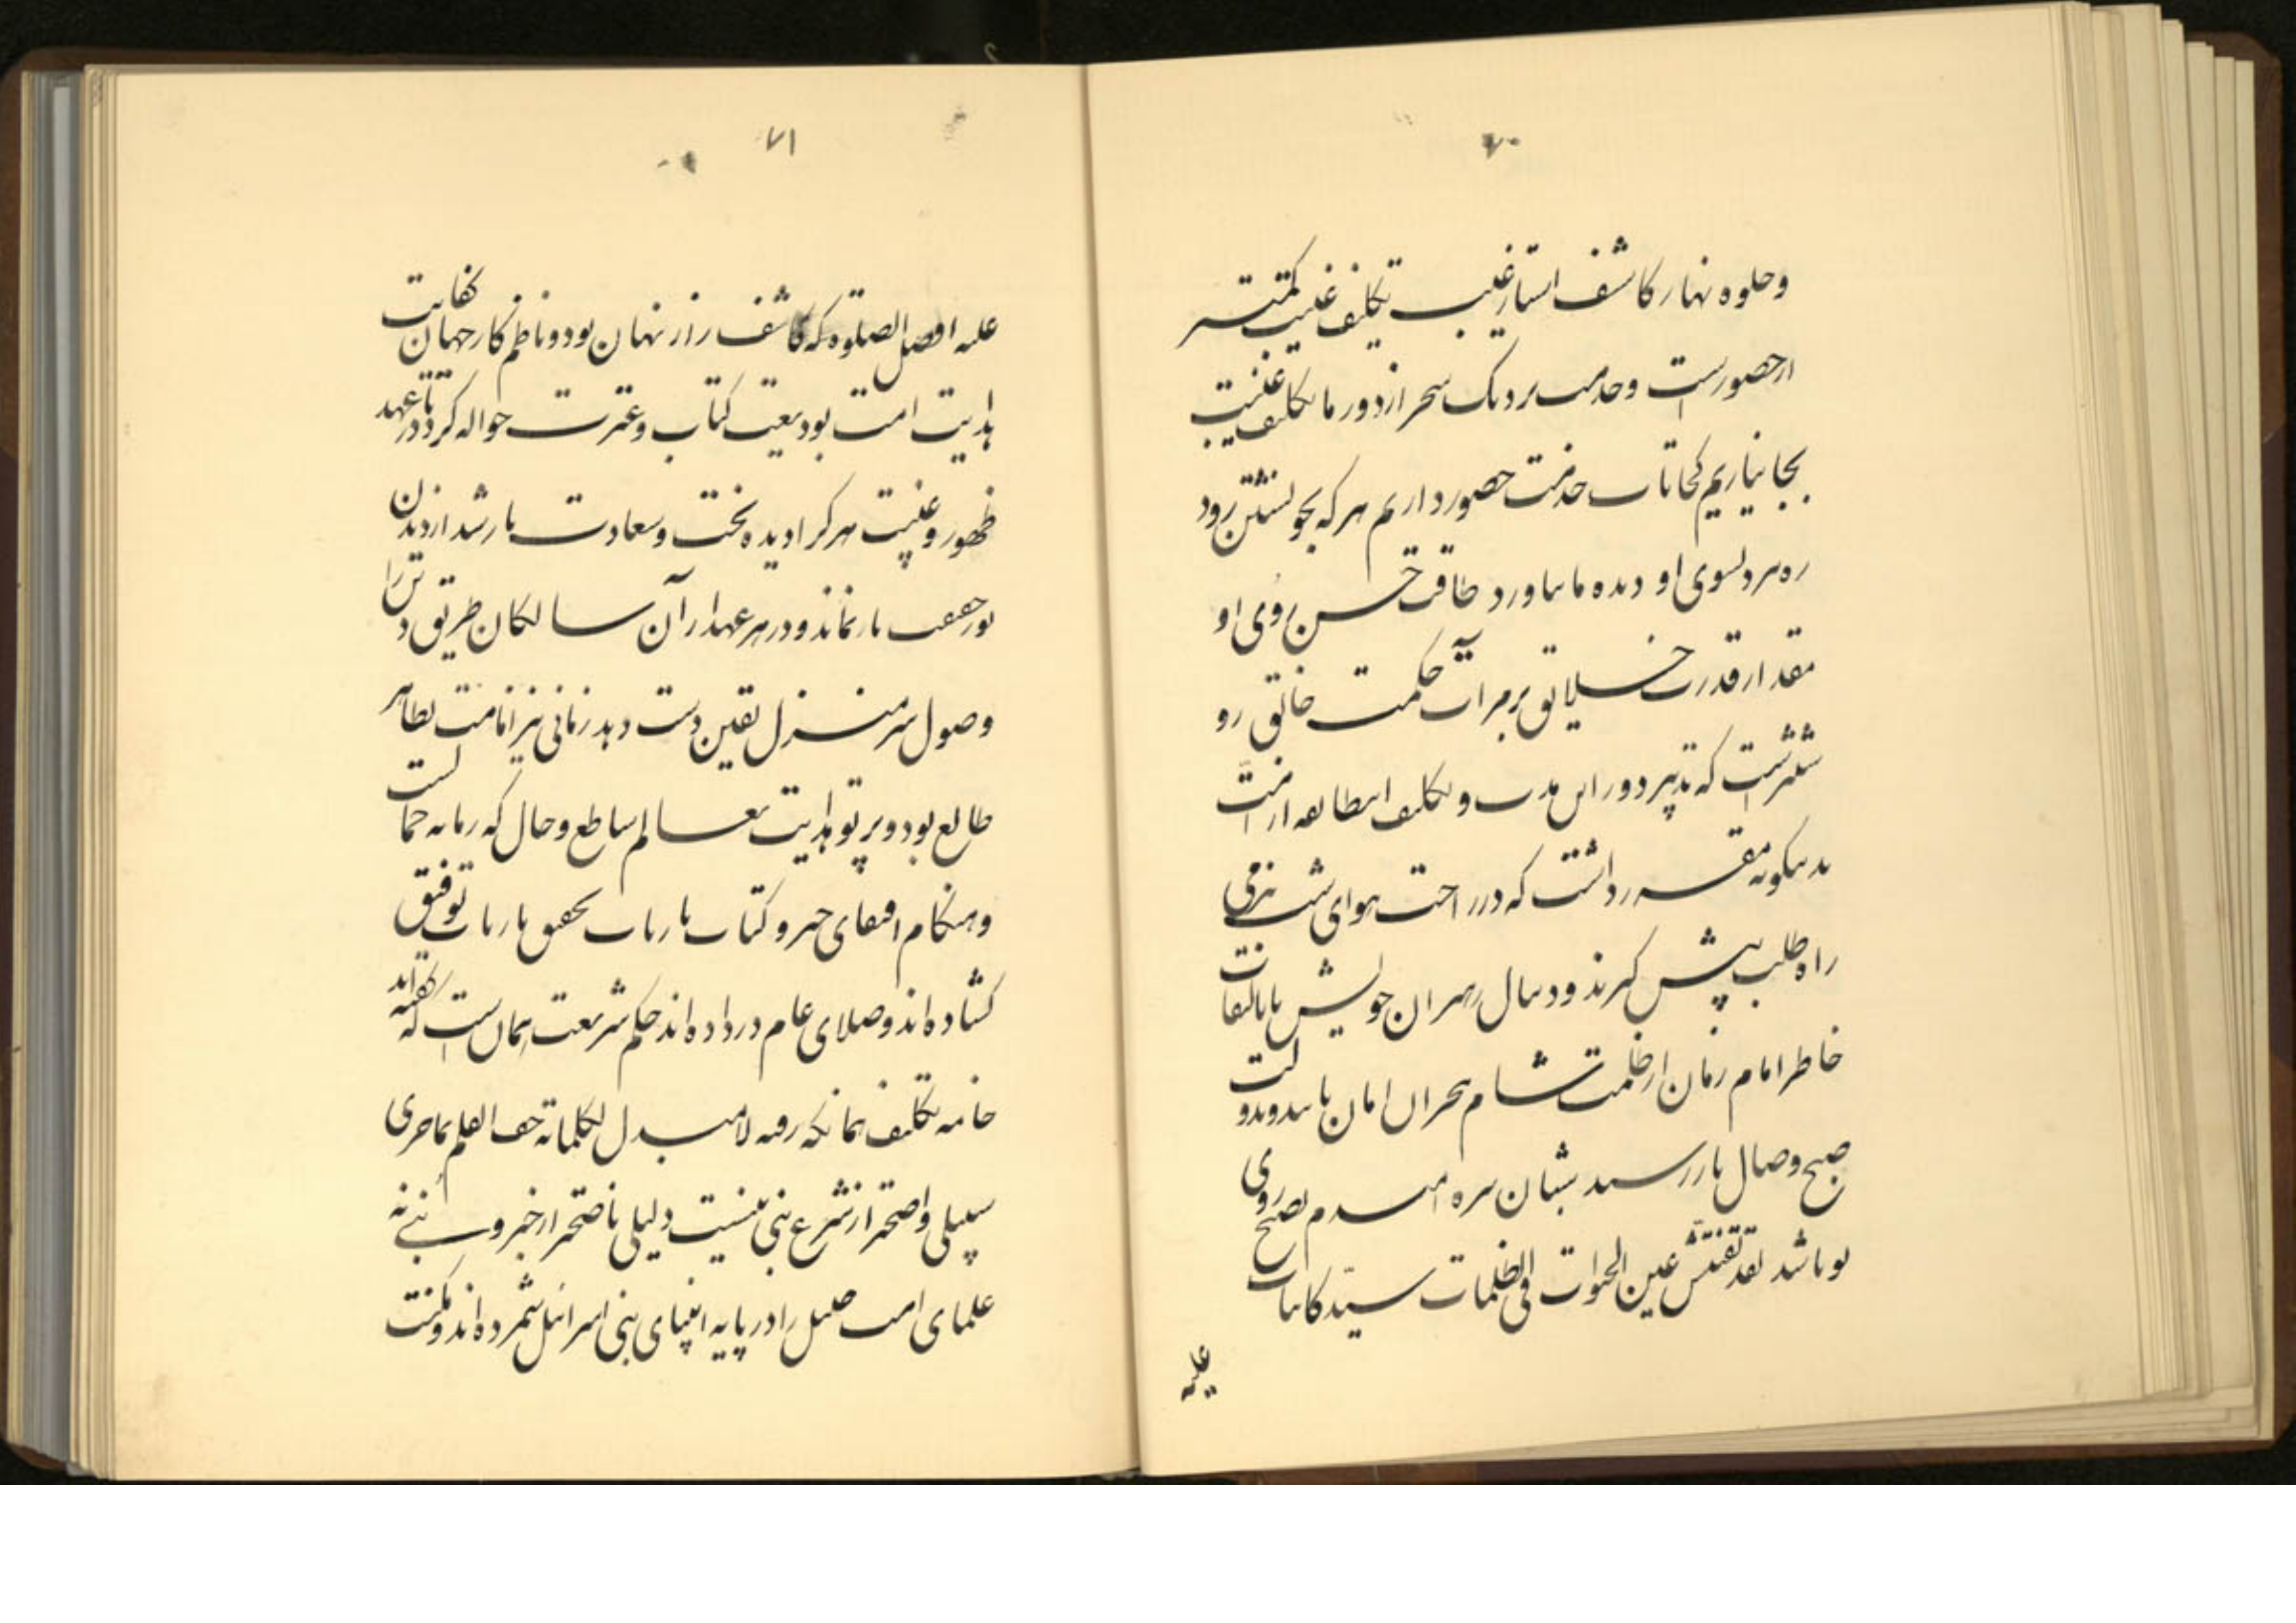 ۷۰
و جلوه نهار کاشف استار غیب تکلیف غیب کمتر
از حضورست و خدمت نزدیک سخر از دور ما تکلیف غیبت
بجا نیاریم کجا تاب خدمت حضور داریم هر که بجوشتن رود
ره نبرد بسوی او دیده ما نیاورد طاقت حسن روی او
مقدار قدرت خلایق بر مرآت حکمت خالق رو
شترست که تدبیر دور این مدت و تکلیف
بدینگونه مقرر داشت که در راحت هوای شب نرمی
راه طلب پیش گیرند و دنبال رهبران خویش تا بالتفات
خاطر امام زمان از ظلمت شام هجران امان یابند و دولت
صبح وصال باز رسد شبان تیره امیدم بصبح روی
تو باشد لقد تفتش عین الحیوات فی الظلمات سید کاینات
علیه
۷۱
علیه افضل الصلوة که کاشف راز نهان بود و ناظم کار جهان کفایت
هدایت امت بودیعت کتاب و عترت حواله کرد تا در عهد
ظهور و غیبت هر کرا دیده بخت و سعادت باز شد از دیدن
نور حقیقت باز نماند و در هر عهد ار آن سالکان طریق دین را
وصول سرمنزل یقین دست دهد زمانی نیز امامت بظاهر
طالع بود و پرتو هدایت بعالم ساطع و حال که زمانه
و هنگام اقتفای خبر و کتاب ارباب تحقیق باز باب توفیق
گشاده اند و صلای عام در داده اند حکم شریعت همان است که گفته اند
خامه تکلیف همان که رفته لا مبدل لکلماته جف القلم بما جری
سبیلی واضحتر از شرع نبی نیست دلیلی ناصحتر از خبر و نبی نه
علمای امت را در پایه انبیای بنی اسرائیل شمرده اند و مکنت